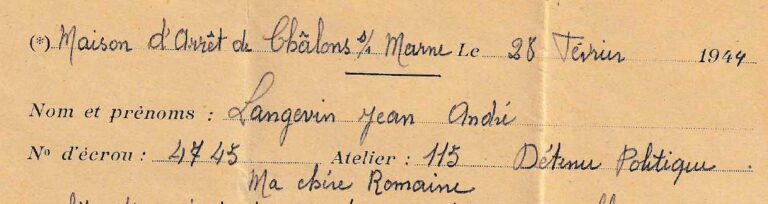 (*) Maison d'Arrêt de Châlons s/ Marne Le 28 Février 1944
Nom et prénoms : Langevin Jean André
N° d'écrou : 4745 Atelier : 115 Détenu Politique.
Ma chère Romaine